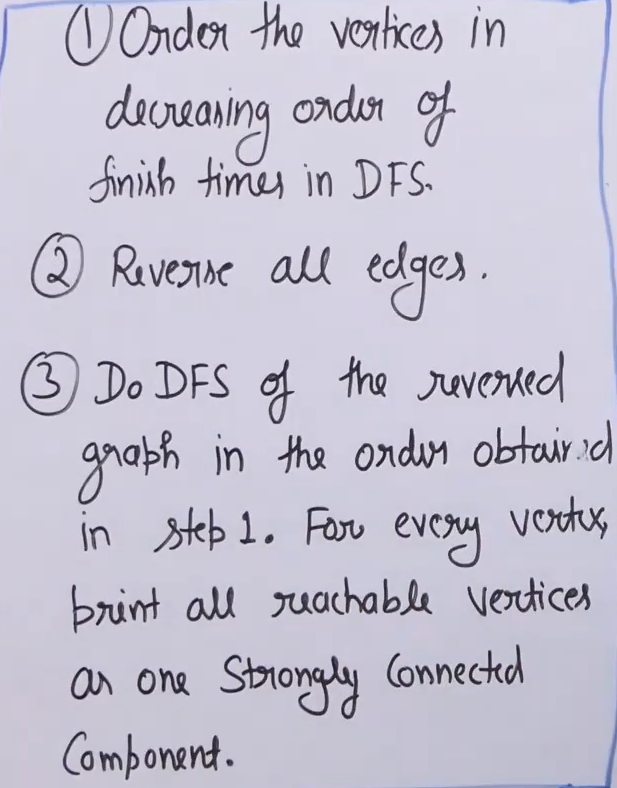 ① Order the vertices in
decreasing order of
finish times in DFS.
② Reverse all edges.
③ Do DFS of the reversed
graph in the order obtained
in step 1. For every vertex,
print all reachable vertices
as one Strongly Connected
Component.